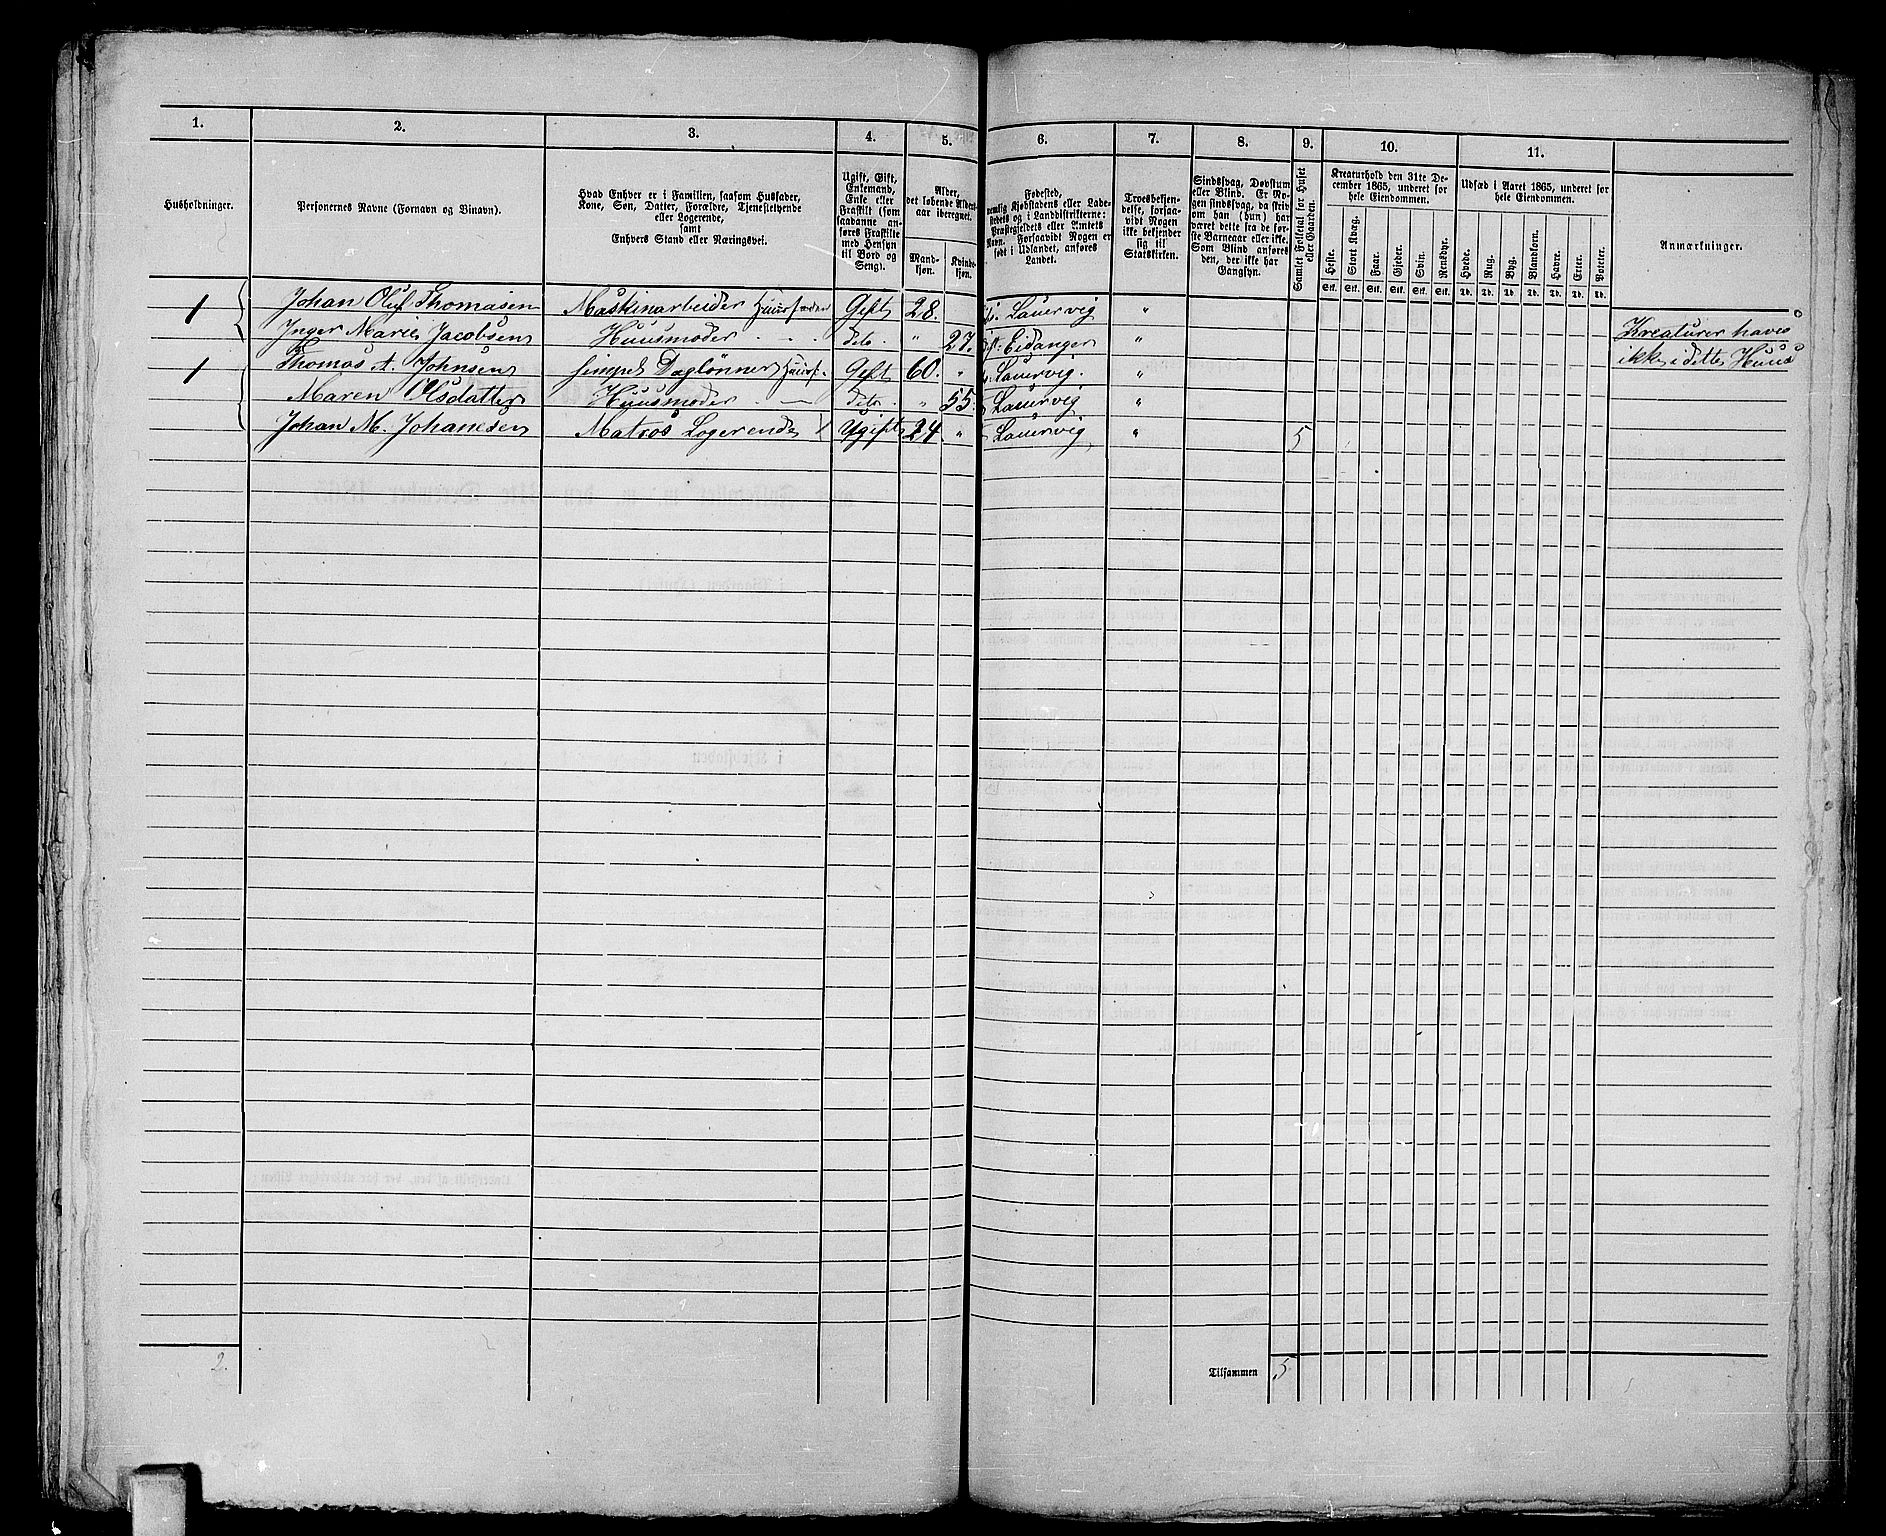 1. 2. 3. 4. 5. 6. 7. 8. 9. 10. 11.
Husholdninger.
Personernes Navne (Fornavn og Binavn).
Hvad Enhver er i Familien, saasom Husfader,
Kone, Søn, Datter, Forældre, Tjenestetyende
eller Logerende,
samt
Enhvers Stand eller Næringsvei.
Ugift, Gift,
Enkemand,
Enke eller
Fraskilt (som
saadanne an-
føres Fraskilte
med Hensyn
til Bord og
Seng).
Alder,
det løbende Alders-
aar iberegnet.
Mand-
kjøn.
Kvinde-
kjøn.
Fødested,
nemlig Kjøbstadens eller Lade-
stedets og i Landdistrikterne:
Præstegjeldets eller Amtets
Navn. Forsaavidt Nogen er
født i Udlandet, anføres
Landet.
Troesbekjen-
delse, forsaa-
vidt Nogen
ikke bekjender
sig til
Statskirken.
Sindssvag, Døvstum
eller Blind. Er No-
gen sindssvag, da skriv
om han (hun) har
været dette fra de før-
ste Barneaar eller ikke.
Som Blind anføres
den, der ikke har
Gangsyn.
Samlet Folketal for Huset
eller Gaarden.
Kreaturhold den 31te De-
cember 1865, underet for
hele Eiendommen.
Heste. Stort Kvæg. Faar. Gjeder. Svin. Rensdyr.
Stk. Stk. Stk. Stk. Stk. Stk.
Udsæd i Aaret 1865, underet for
hele Eiendommen.
Hvede. Rug. Byg. Blandkorn. Havre. Erter. Poteter.
Td. Td. Td. Td. Td. Td. Td.
Anmærkninger.
1 Johan Oluf Thomasen Maskinarbeider Huusfader Gift 28. Laurvig "
Inger Marie Jacobsen Huusmoder - - dito " 27. Eidanger " Kreaturer haves
1 Thomas A. Johnsen simpel Daglønner Huusf. Gift 60. " Laurvig. " ikke i dette Huus
Maren Olsdatter Huusmoder - - dito " 55 Laurvig "
Johan M. Johanesen Matros Logerende / Ugift 24 " Laurvig " 5
2. Tilsammen 5